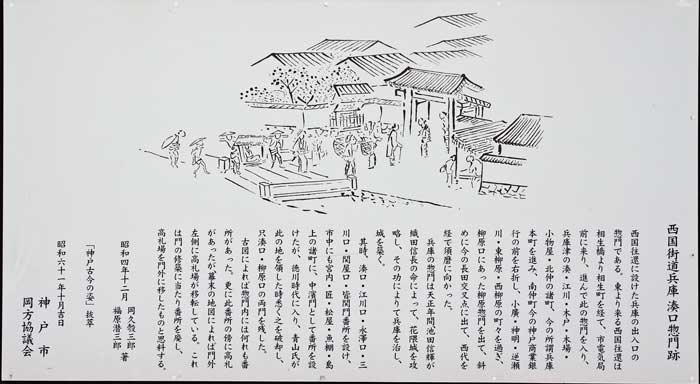 西国街道兵庫 湊口惣門跡
西国往還に設けた兵庫の出入口の
惣門である。東より来る西国往還は
相生橋より相生町を経て、市電気局
前に来り、進んで此の惣門を入り、
兵庫津の湊・江川・木戸・木場・
小物屋・北仲の諸町、今の所謂兵庫
本町を進み、南仲町今の神戸商業銀
行の前を右折し、小廣・神明・逆瀬
川・東柳原・西柳原の町々を過ぎ、
柳原口にあった柳原惣門を出て、斜
めに今の長田交叉点に出て、西代を
経て須磨に向かった。
兵庫の惣門は天正年間池田信輝が
織田信長の命によって、花隈城を攻
略し、その功によって兵庫を治し、
城を築く。
其時、湊口・江川口・永澤口・三
川口・関屋口・皆関門番所を設け、
市中にも宮内・匠・松屋・魚棚・島
上の諸町に、中濱門として番所を設
けたが、徳川時代に入り、青山氏が
此の地を領した時悉く之を破却し、
只湊口・柳原口の両門を残した。
古図によれば惣門内には何れも番
所があった。更に此番所の傍に高札
があったが幕末の地図によれば門外
左側に高札場が移転している。これ
は門の修築に当たり番所を廃し、
高札場を門外に移したものと思料する。
昭和四年十二月 岡久殻三郎 著
福原潜三郎
「神戸古今の姿」抜萃
昭和六十一年十月吉日
神戸市
岡方協議会